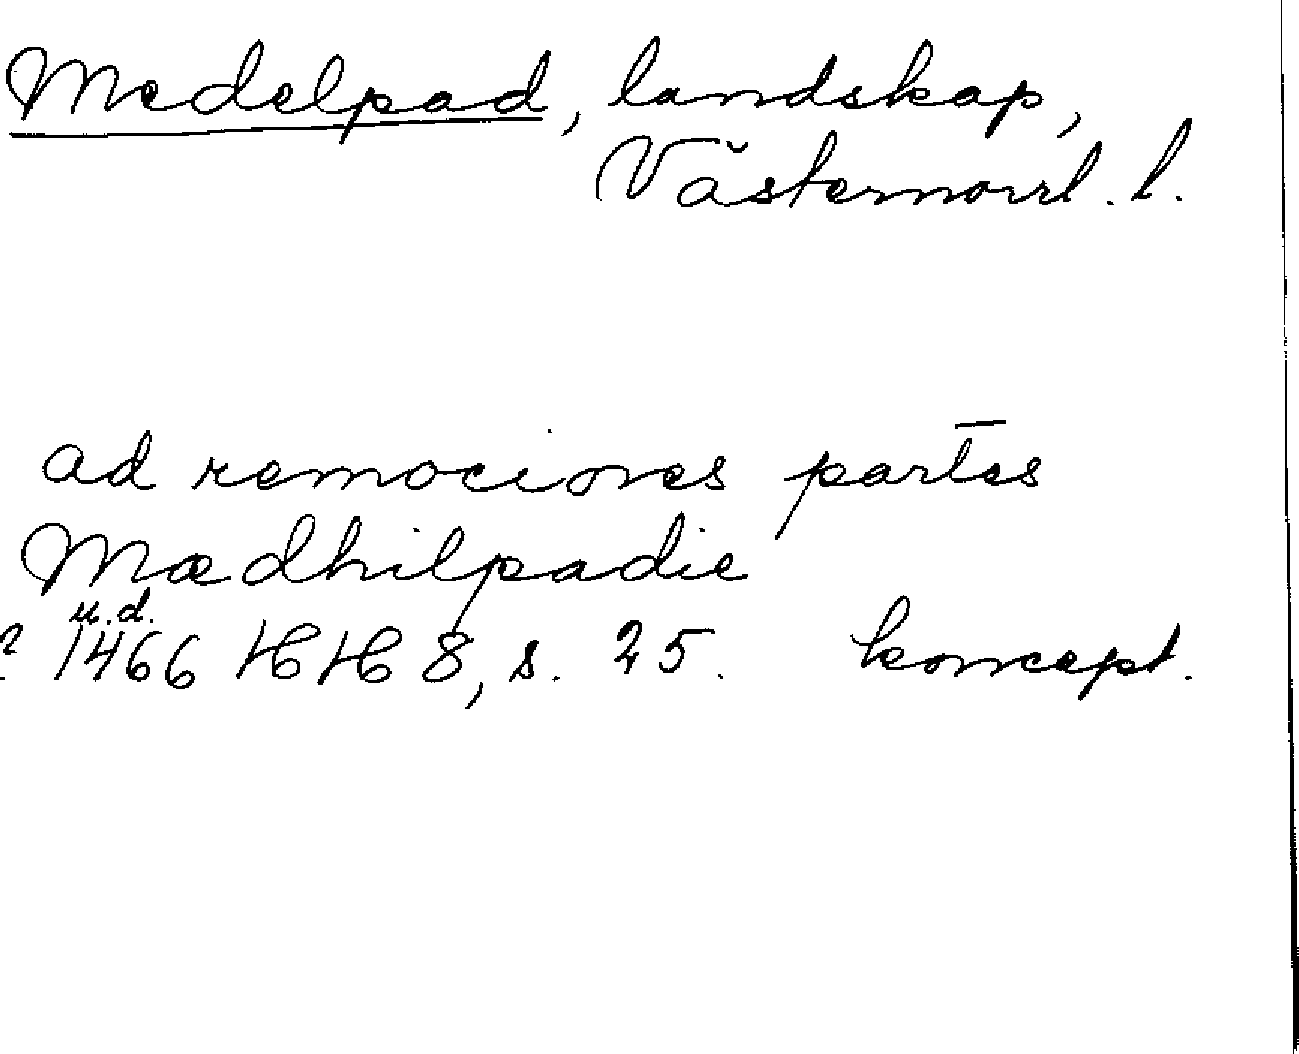 Medelpad, landskap,
Västernorrl. l.
ad remociones partes
Mædhilpadie
u.d.
? 1466 HH 8, s. 25. koncept.